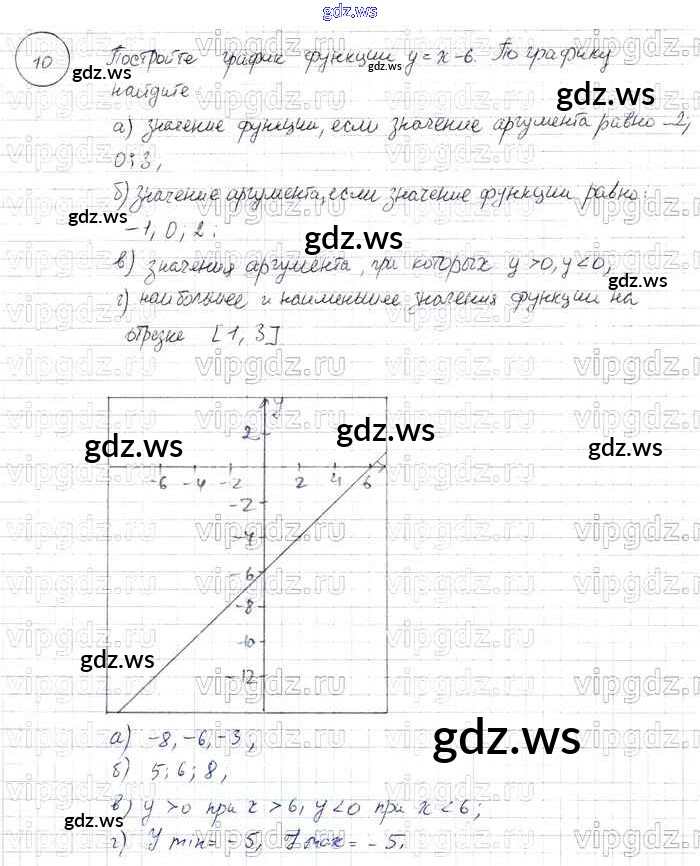 gdz.ws
10 Постройте график функции y = x - 6. По графику
найдите
а) значение функции, если значение аргумента равно -2,
0; 3,
б) значение аргумента, если значение функции равно:
-1, 0, 2.
в) значения аргумента, при которых y > 0, y < 0,
г) наибольшее и наименьшее значения функции на
отрезке [1, 3]
y
2
-6 -4 -2 2 4 6
-2
-4
-6
-8
-10
-12
а) -8, -6, -3,
б) 5; 6; 8,
в) y > 0 при x > 6, y < 0 при x < 6;
г) Y min = -5, Y max = -5.
gdz.ws
vipgdz.ru